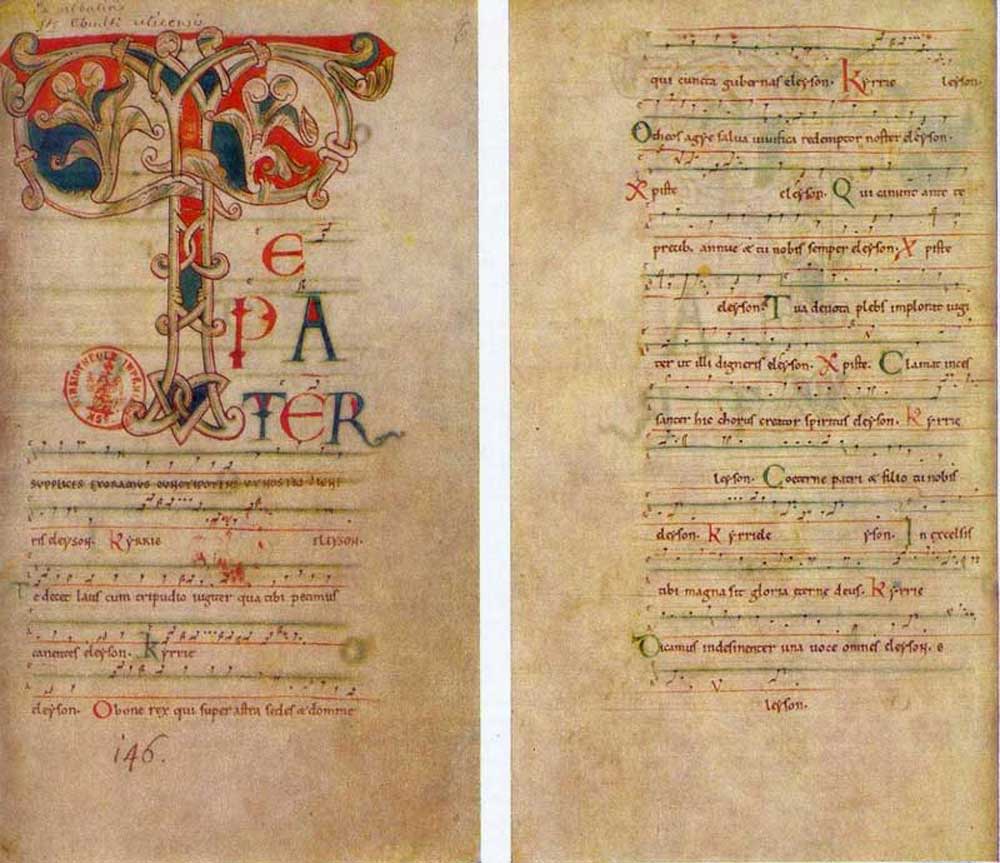 E
PA
TER
SUPPLICES EXORAMUS
ris eleyson. Kyrrie eleyson.
Te decet laus cum tripudio iugiter qua tibi petimus
canentes eleyson. kyrrie
eleyson. O bone rex qui super astra sedes & domine
146.
qui cuncta gubernas eleyson. Kyrrie leyson.
Otheos agye salva vivifica redemptor noster eleyson.
Xpiste eleyson. Qui canunt ante te
precib. annue & tu nobis semper eleyson. Xpiste
eleyson. Tua devota plebs implorat iugi
ter ut illi digneris eleyson. Xpiste. Clamat inces
santer hic chorus creator spiritus eleyson. Kyrrie
leyson. Coeterne patri & filio tu nobis
eleyson. Kyrriele yson. In excelsis
tibi magna sit gloria eterne deus. Kyrrie
Dicamus indesinenter una voce omnes eleyson. e
leyson.